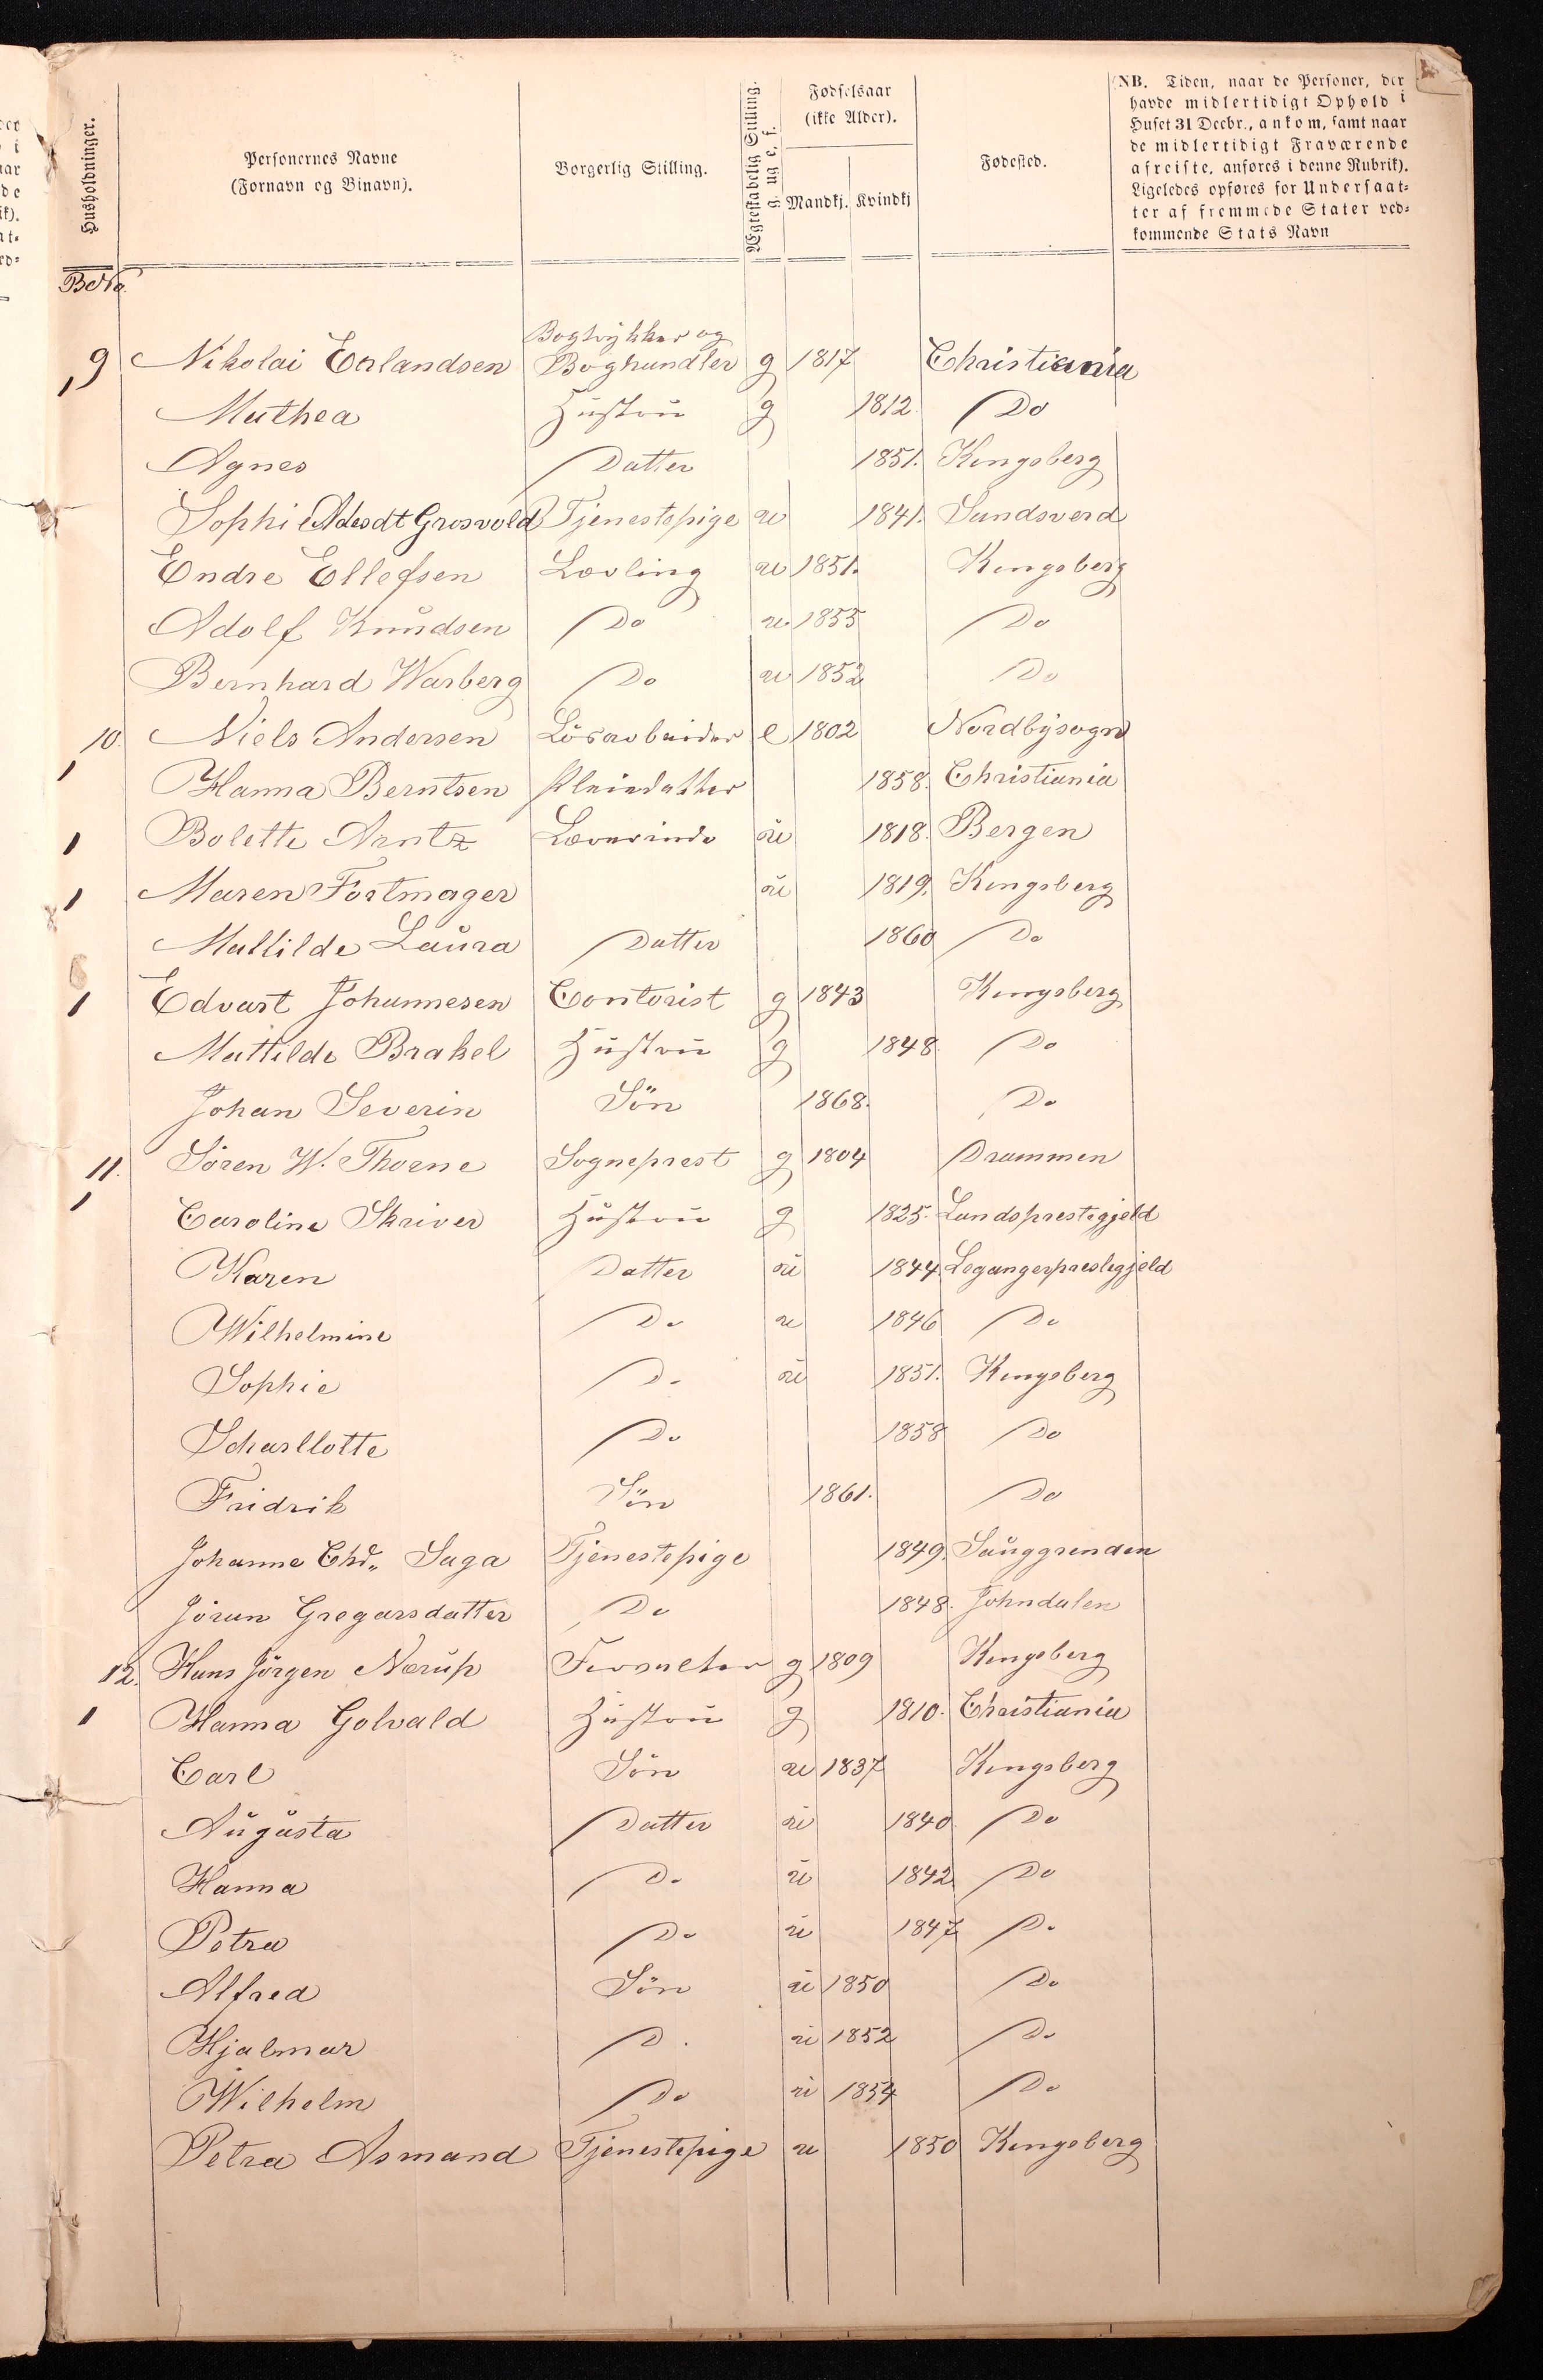 Husholdninger.
Personernes Navne
(Fornavn og Binavn).
Borgerlig Stilling.
Ægteskabelig Stilling.
g. ug. e. f.
Fødselsaar
(ikke Alder).
Mandkj. Kvindkj
Fødested.
NB. Tiden, naar de Personer, der
havde midlertidigt Ophold i
Huset 31 Decbr., ankom, samt naar
de midlertidigt Fraværende
afreiste, anføres i denne Rubrik).
Ligeledes opføres for Undersaat-
ter af fremmede Stater ved-
kommende Stats Navn
Bogtrykker og
9 Nikolai Erlandsen Boghandler g 1817 Christiania
Mathea Hustru g 1812 Do
Agnes Datter 1851. Kongsberg
Sophie Adesdt Grosvold Tjenestepige u 1841. Sandsverd
Endre Ellefsen Lærling u 1851. Kongsberg
Adolf Knudsen Do u. 1855 Do
Bernhard Warberg Do u 1852 Do
10. Niels Andersen Lösarbeider e 1802 Nordbysogn
1 Hanna Berntsen Pleiedatter 1858. Christiania
1 Bolette Arntz Lærerinde u 1818. Bergen
1 Maren Fortmager u 1819. Kongsberg
Mathilde Laura Datter 1860 Do
1 Edvart Johannesen Contorist g 1843 Kongsberg
Mathilde Brakel Hustru g 1848 Do
Johan Severin Sön 1868. Do
11. Sören W. Thorne Sogneprest g 1804 Drammen
1 Caroline Skriver Hustru g 1825. Landsprestegjeld
Karen Datter u 1844. Legangerprestegjeld
Wilhelmine Do u 1846 Do
Sophie Do u 1851. Kongsberg
Scharllotte Do 1858 Do
Fridrik Sön 1861. Do
Johanne Chd„ Saga Tjenestepige 1849. Sauggrenden
Jörun Gregarsdatter Do 1848. Johndalen
12. Hans Jörgen Nærup Forvalter g 1809 Kongsberg
1 Hanna Golvald Hustru g 1810. Christiania
Carl Sön u 1837 Kongsberg
Augusta Datter u 1840 Do
Hanna Do u 1842 Do
Petra Do u 1847 Do
Alfred Sön u 1850 Do
Hjalmar D. u 1852 Do
Wilhelm Do u 1854 Do
Petra Asmand Tjenestepige u 1850 Kongsberg